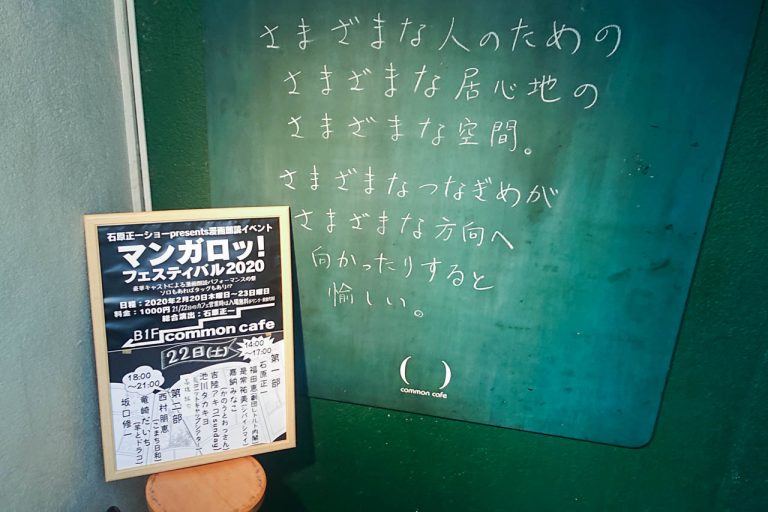 さまざまな人のための
さまざまな居心地の
さまざまな空間。
さまざまなつなぎめが
さまざまな方向へ
向かったりすると
愉しい。
( )
common cafe
石原正一ショーpresents漫画朗読イベント
マンガロッ!
フェスティバル2020
豪華キャストによる漫画朗読パフォーマンスの祭
ソロもあればタッグもあり!?
日程:2020年2月20日木曜日~23日曜日
料金:1000円
総合演出:石原正一
B1F common cafe
22日(土)
14:00
~17:00
第一部
石原正一
福田恵(劇団レトルト内閣)
是常祐美(シバイシマイ)
嘉納みなこ
(かのうとおっさん)
吉陸アキコ(sunday)
池川タカキヨ
18:00
~21:00
第二部
西村朋恵
(こまち日和)
竜崎だいち
(羊とドラコ)
坂口修一